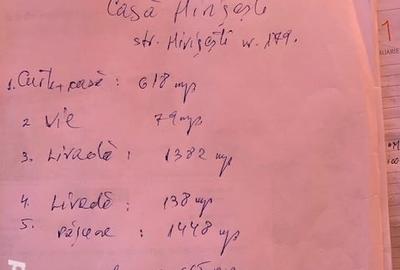 Casă Hirișești
str. Hirișești nr. 179.
1. Curte + casă : 618 mp
2 Vie 79 mp
3. Livadă : 1382 mp
4. Livadă : 138 mp
5. pășune : 1448 mp
1